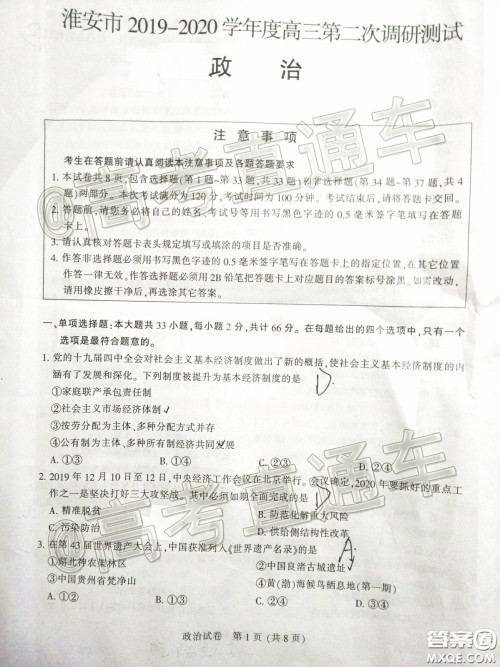 淮安市 2019-2020 学年度高三第二次调研测试
政 治
注 意 事 项
考生在答题前请认真阅读本注意事项及各题答题要求
1. 本试卷共 8 页，包含选择题(第 1 题~第 33 题，共 33 题)和非选择题(第 34 题~第 37 题，共 4
题)两部分。本次考试满分为 120 分，考试时间为 100 分钟。考试结束后，请将答题卡交回。
2. 答题前，请您务必将自己的姓名、考试号等用书写黑色字迹的 0.5 毫米签字笔填写在答题
卡上。
3. 请认真核对答题卡表头规定填写或填涂的项目是否准确。
4. 作答非选择题必须用书写黑色字迹的 0.5 毫米签字笔写在答题卡上的指定位置，在其它位
置作答一律无效。作答选择题必须用 2B 铅笔把答题卡上对应题目的答案标号涂黑。如需改动，
请用橡皮擦干净后，再选涂其它答案。
一、单项选择题：本大题共 33 小题，每小题 2 分，共计 66 分。在每题给出的四个选项中，只有一个
选项是最符合题意的。
1. 党的十九届四中全会对社会主义基本经济制度做出了新的概括，使社会主义基本经济制度的内
涵有了发展和深化。下列制度被提升为基本经济制度的是
D
①家庭联产承包责任制
②社会主义市场经济体制
③按劳分配为主体、多种分配方式并存
④公有制为主体、多种所有制经济共同发展
A. ①③ B. ①④ C. ②③ D. ②④
2. 2019 年 12 月 10 日至 12 日，中央经济工作会议在北京举行。会议确定，2020 年要抓好的重点工
作之一是坚决打好三大攻坚战。其中必须如期全面完成的是
D
A. 精准脱贫 B. 防范化解重大风险
C. 污染防治 D. 供给侧结构性改革
3. 在第 43 届世界遗产大会上，中国获准列入《世界遗产名录》的是
A.
①湖北神农架林区 ②中国良渚古城遗址
③中国贵州省梵净山 ④黄(渤)海候鸟栖息地(第一期)
A. ①② B. ①③ C. ②④ D. ③④
政治试卷 第 1 页 (共 8 页)
@高考直通车
@高考直通车
@高考直通车
答案圈
MXQE.COM